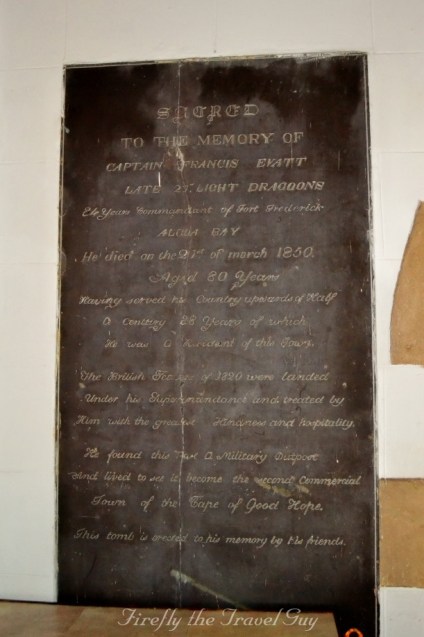 SACRED
TO THE MEMORY OF
CAPTAIN FRANCIS EVATT
LATE 21st LIGHT DRAGOONS
Years Commandant of Fort Frederick
ALGOA BAY
He died on the 21st of march 1850.
Aged 80 Years
Having served his Country upwards of Half
A Century 28 Years of which
He was A Resident of this Town.
The British Settlers of 1820 were landed
Under his Superintendance and treated by
Him with the greatest Kindness and hospitality.
He found this Port A Military Outpost
And lived to see it become the second Commercial
Town of the Cape of Good Hope.
This tomb is erected to his memory by his friends.
Firefly the Travel Guy